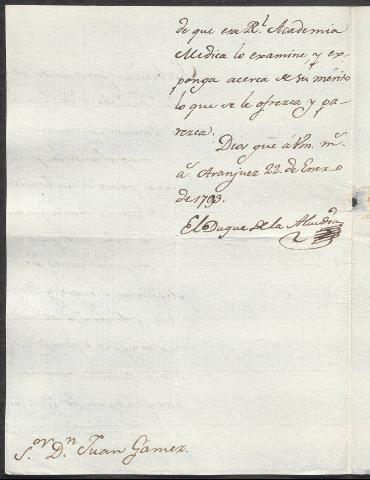 de que esa Rl. Academia
Medica lo examine, y ex-
ponga acerca de su mérito
lo que se le ofrezca y pa-
rezca.
Dios gue. á Vm. ms.
as. Aranjuez 22. de Enero
de 1793.
El Duque de la Alcudia
S.or D.n Juan Gámez.